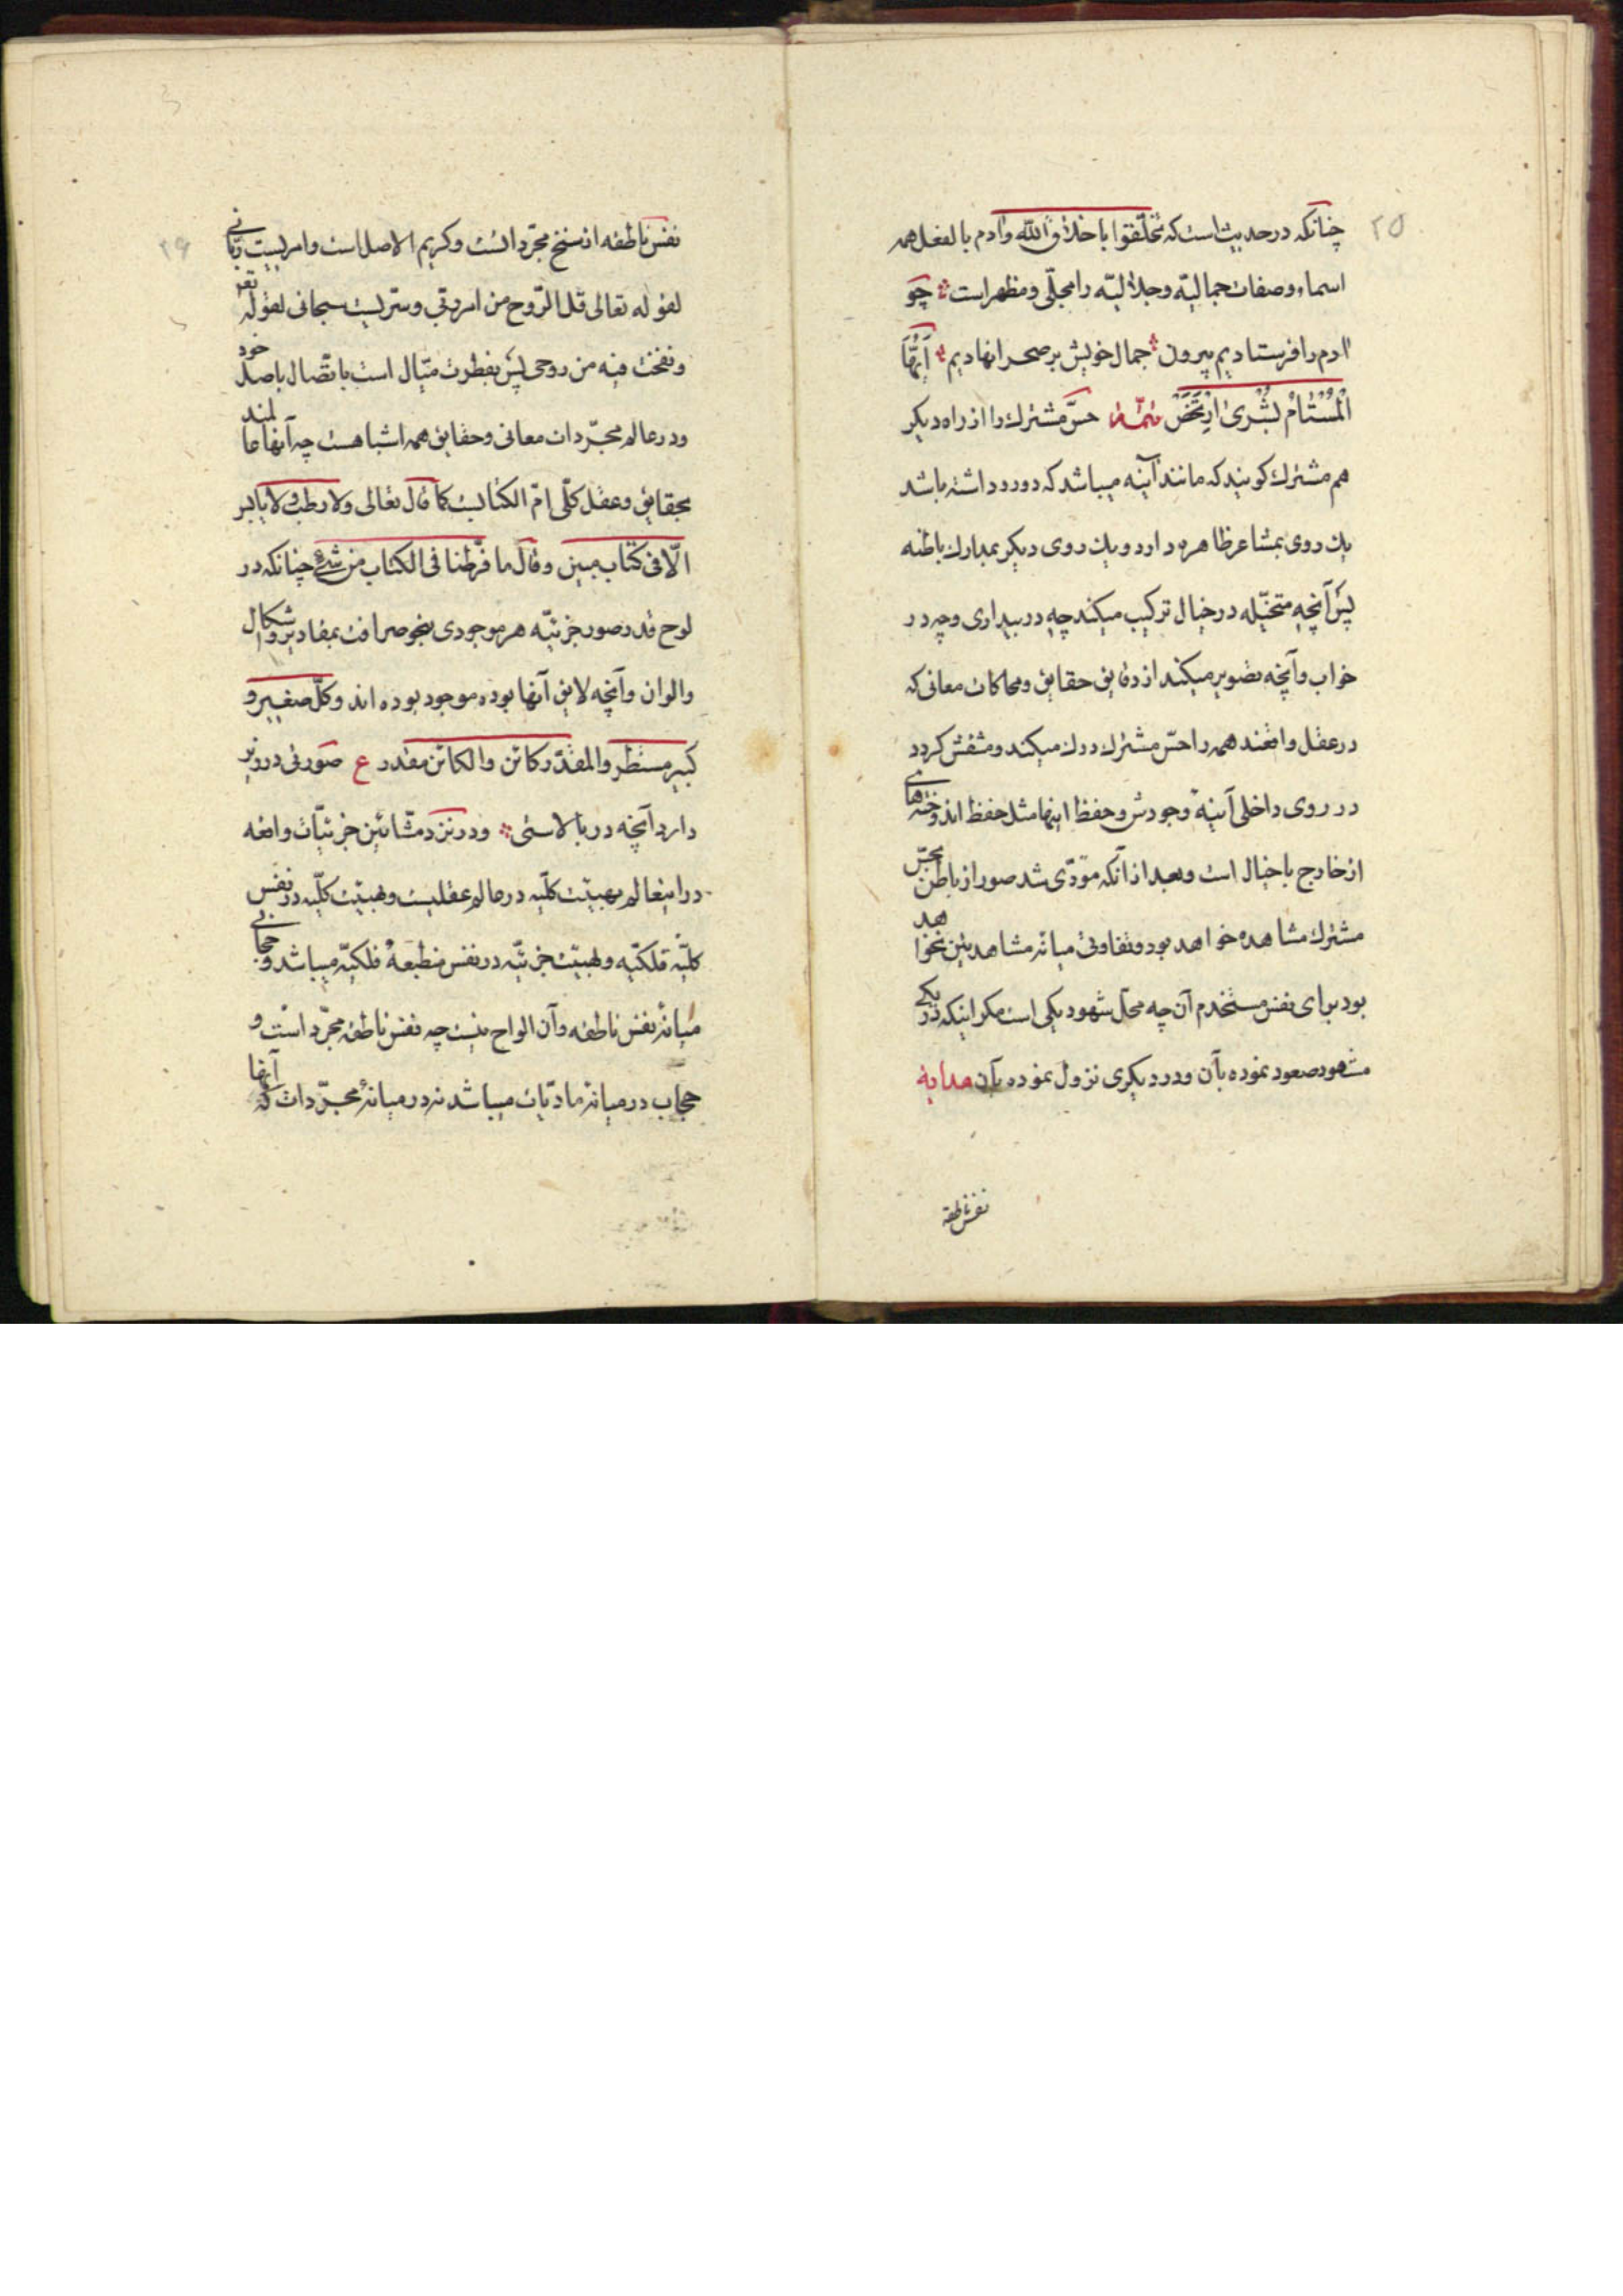 ۲۵
چنانکه در حدیث است که تخلّقوا باخلاق الله وآدم بالفعل همه
اسماء وصفات جمالیّه وجلالیّه را مجلّی ومظهر است چو
ادم را فرستادیم بیرون جمال خویش بر صحرا نهادیم ایّها
المستام بشری ارتخص تتمة حسّ مشترک را از راه دیکر
هم مشترک کویند که مانند آینه میباشد که دو رو داشته باشد
یک روی بمشاعر ظاهره دارد ویک روی دیکر بمدارک باطنه
پس آنچه متخیّله در خیال ترکیب میکند چه در بیداری وچه در
خواب وآنچه تصویر میکند از دقایق حقایق ومحاکات معانی که
در عقل واقعند همه را حسّ مشترک درک میکند ومنقش کردد
در روی داخلی آینهٔ وجودش وحفظ اینها مثل حفظ اندوخته‌های
از خارج با خیال است وبعد از آنکه مؤدّی شد صور از باطن بحسّ
مشترک مشاهده خواهد بود وتفاوتی میانه مشاهدتین نخواهد
بود برای نفس مستخدم آن چه محلّ شهود یکی است مکر اینکه در یکی
مشهود صعود نموده بآن ودر دیکری نزول نموده بآن هدایة
نفس ناطقه
۲۶
نفس ناطقه از سنخ مجرّداتست وکریم الاصل است وامریست ربّانی
لقوله تعالی قل الرّوح من امر ربّی وسرّیست سبحانی لقوله تعر
ونفخت فیه من روحی پس بفطرت میّال است باتّصال باصل خود
ودر عالم مجرّدات معانی وحقایق همه اشیا هست چه آنها عالمند
بحقایق وعقل کلّی امّ الکتابست کما قال تعالی ولا رطب ولا یابس
الّا فی کتاب مبین وقال ما فرّطنا فی الکتاب من شیء چنانکه در
لوح قدر صور جزئیّه هر موجودی بنحو صرافت بمقادیر واشکال
والوان وآنچه لایق آنها بوده موجود بوده اند وکلّ صغیر و
کبیر مستطر والمقدّر کائن والکائن مقدر ع صورتی در زیر
دارد آنچه در بالاستی ودر نزد مشّائین جزئیّات واقعه
در اینعالم بهیئت کلّیه در عالم عقلیست وبهیئت کلّیه در نفس
کلیّه فلکیّه وبهیئت جزئیّه در نفس منطبعهٔ فلکیّه میباشد وحجابی
میانهٔ نفس ناطقه وآن الواح نیست چه نفس ناطقه مجرّد است و
حجاب در میانه مادّیات میباشد نه در میانهٔ مجرّدات که آنها